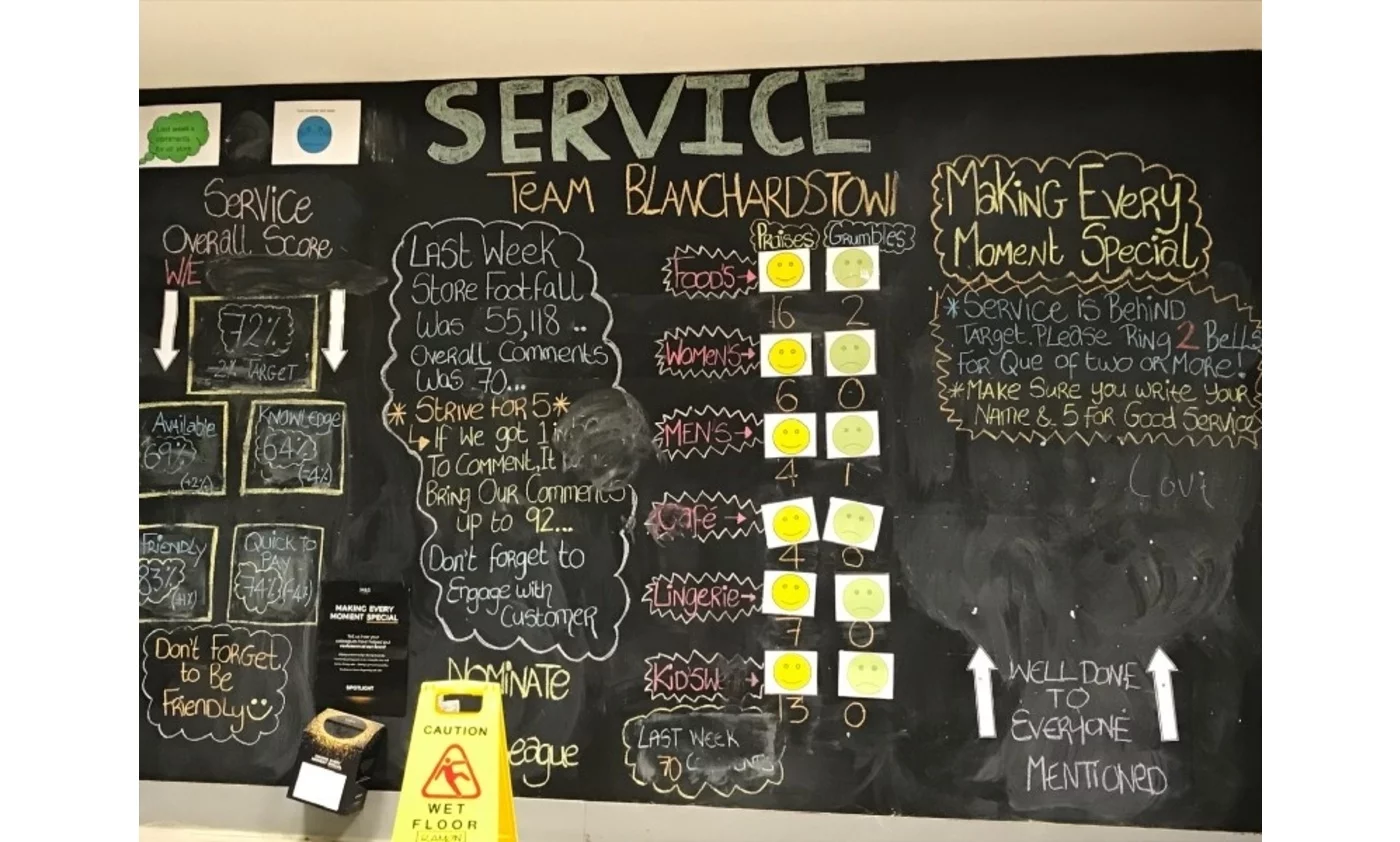 SERVICE
TEAM BLANCHARDSTOWN
Last week's
comments
SERVICE
OVERALL SCORE
W/E
72%
-2% TARGET
Available
69%
(+2%)
KNOWLEDGE
64%
(-4%)
FRIENDLY
83%
QUICK TO
PAY
74% (-4%)
Don't FORGET
to Be
FRiENDLY
MAKING EVERY
MOMENT SPECIAL
SPOTLIGHT
LAST WEEK
STORE FOOTFALL
WAS 55,118 ..
OVERALL COMMENTS
WAS 70...
* STRIVE FOR 5*
IF WE GOT 1 in
TO COMMENT, IT
BRING OUR COMMENTS
UP to 92...
Don't forget to
Engage with
CUSTOMER
NOMINATE
eague
CAUTION
WET
FLOOR
Praises Grumbles
FOOD'S
16 2
WOMEN'S
6 0
MEN'S
4 1
Café
4 0
LINGERIE
7 0
KID'SW
13 0
LAST WEEK
70
MAKING EVERY
MOMENT SPECIAL
*SERVICE IS BEHIND
TARGET. PLEASE RING 2 BELLS
FOR QUE OF TWO OR MORE!
*MAKE SURE YOU WRITE YOUR
NAME & 5 FOR GOOD SERVICE
WELL DONE
TO
EVERYONE
MENTIONED